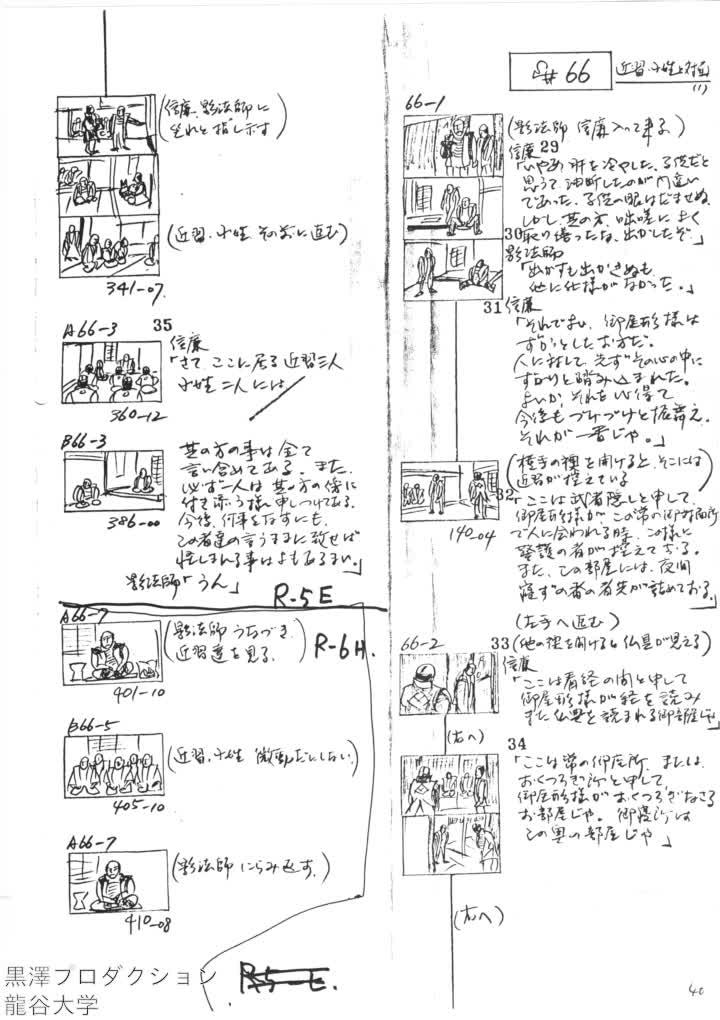 S# 66
近習・小姓と対面
(1)
66-1
(影法師 信廉 入って来る)
信廉 29
「いやあ 肝を冷やした、子供だと
思うて、油断したのが間違い
であった。子供の眼はだませぬ
しかし、其の方、咄嗟によく
30 取り繕ったな、出かしたぞ。」
影法師
「出かすも出かさぬも、
他に仕様がなかった。」
31 信廉
「それでよい、御屋形様は
ずかっとしたお方だ。
人に対して、先ずその心の中に
ずかりと踏み込まれた。
よいか、それを心得て
今後も づけづけと振舞え、
それが一番じゃ。」
(横手の襖を開けると、そこには
近習が控えている)
32
「ここは武者隠しと申して、
御屋形様が、この常の御座所
で人に会われる時、この様に
警護の者が控えておる。
また、この部屋には、夜間
寝ずの番の者共が詰めておる。」
140-04
(左手へ進む)
66-2
33 (他の襖を開けると仏具が見える)
信廉
「ここは看経の間と申して
御屋形様が経を読み
また仏典を読まれる御部屋じゃ」
(右へ)
34
「ここは常の御座所、または、
おくつろぎ所と申して、
御屋形様が おくつろぎなさる
お部屋じゃ。御寝所は
この奥の部屋じゃ」
(右へ)
40
(信廉、影法師に
坐れと指し示す)
(近習・小姓 その前に進む)
341-07
A66-3 35
信廉
「さて、ここに居る近習三人
小姓二人には
360-12
B66-3
其の方の事は全て
言い含めてある。また、
必ず一人は其の方の傍に
付き添う様 申しつけてある。
今後、何事をなすにも、
この者達の言うままに致せば
怪しまれる事はよもあるまい。」
386-00
影法師「うん」
R-5E
A66-7
(影法師 うなづき、
近習達を見る)
R-6H.
401-10
B66-5
(近習・小姓 微動だにしない)
405-10
A66-7
(影法師 にらみ返す。)
410-08
R5-E.
黒澤プロダクション
龍谷大学